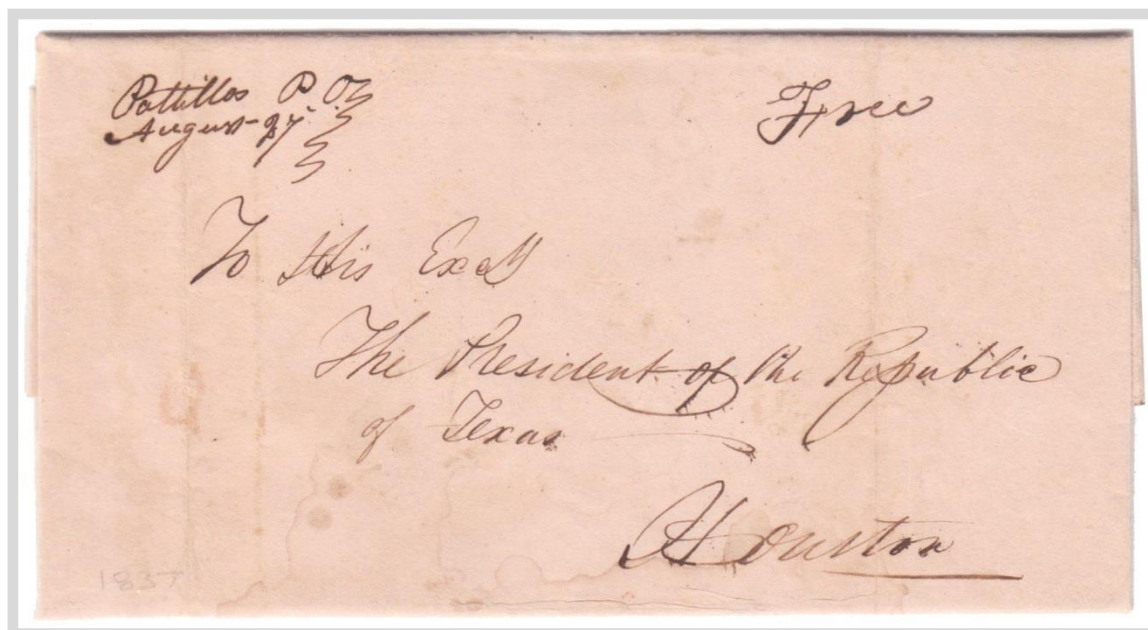 Pattillos P. O.
August 27.
Free
To His Excelly
The President of the Republic
of Texas
Houston
1837